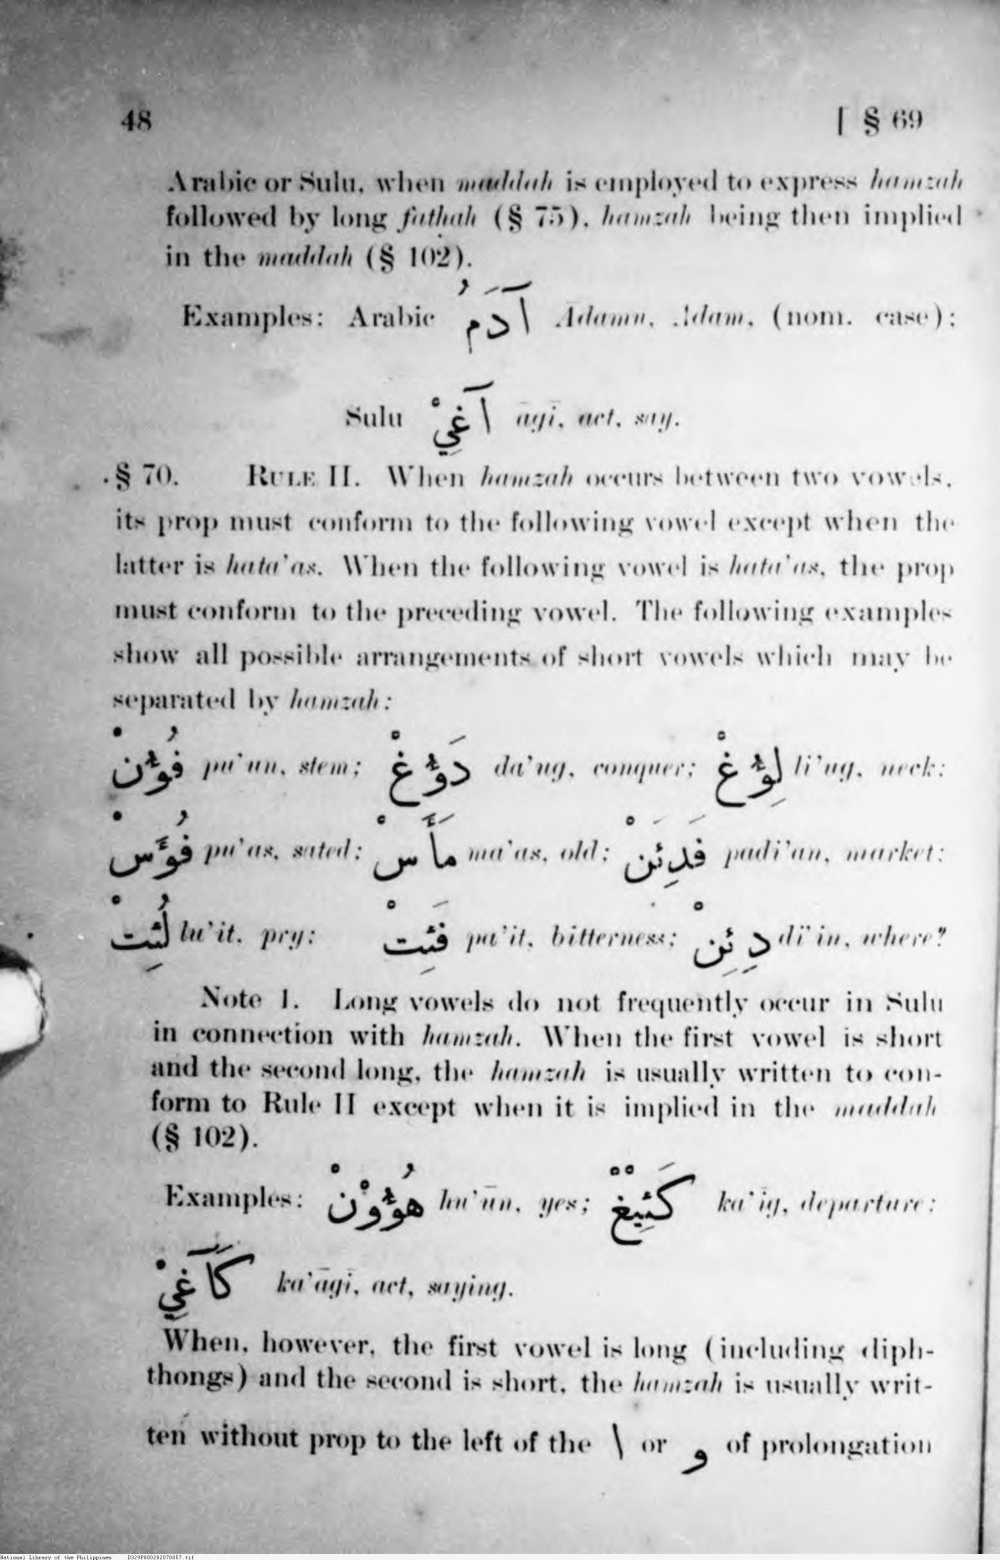 48 [ § 69
Arabic or Sulu, when maddah is employed to express hamzah
followed by long fathah (§ 75), hamzah being then implied
in the maddah (§ 102).
Examples: Arabic آدَمُ Ādamu, Adam, (nom. case);
Sulu آغِيْ āgī, act, say.
§ 70. RULE II. When hamzah occurs between two vowels,
its prop must conform to the following vowel except when the
latter is hata'as. When the following vowel is hata'as, the prop
must conform to the preceding vowel. The following examples
show all possible arrangements of short vowels which may be
separated by hamzah:
فُؤُنْ pu'un, stem; دَؤُغْ da'ug, conquer; لِؤُغْ li'ug, neck;
فُؤَسْ pu'as, sated; مَأَسْ ma'as, old; فَدِئَنْ padi'an, market;
لُئِتْ lu'it, pry; فَئِتْ pa'it, bitterness; دِئِنْ di'in, where?
Note 1. Long vowels do not frequently occur in Sulu
in connection with hamzah. When the first vowel is short
and the second long, the hamzah is usually written to con-
form to Rule II except when it is implied in the maddah
(§ 102).
Examples: هُؤُوْنْ hu'ūn, yes; كَئِيْغْ ka'īg, departure;
كَآغِيْ ka'āgī, act, saying.
When, however, the first vowel is long (including diph-
thongs) and the second is short, the hamzah is usually writ-
ten without prop to the left of the ا or و of prolongation
National Library of the Philippines